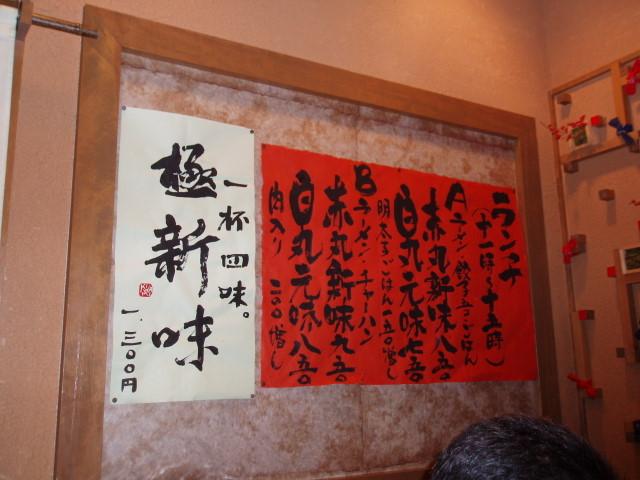 ランチ
(十一時～十五時)
A ラーメン 餃子五つ ごはん
赤丸新味八五〇
白丸元味七五〇
明太子ごはん一五〇増し
B ラーメン チャーハン
赤丸新味九五〇
白丸元味八五〇
肉入り 二〇〇増し
一杯四味。
極新味
一、三〇〇円